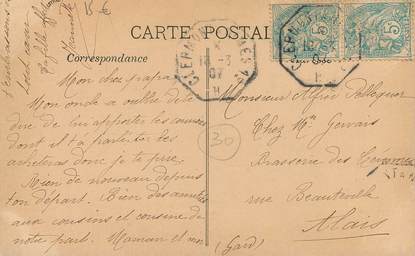 CARTE POSTALE
Correspondance
Mon cher papa
Mon oncle a oublié de te
dire de lui apporter les courses
dont il t'a parlé tu les
acheteras donc je te prie.
Rien de nouveau depuis
ton départ. Bien des amitiés
aux cousins et cousine de
notre part. Maman et moi
t'embrassons
tout cœur
Ta fille
B €
CLERM
18-3
07
5
5
30
Monsieur Alfred
Chez Mr Gervais
Brasserie des Cévennes
rue Beauteville
Alais
(Gard)